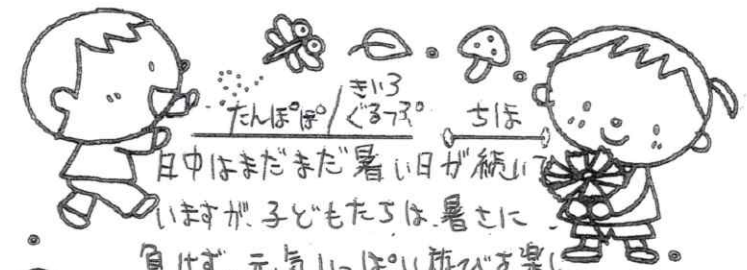 たんぽぽ/きいろぐるうぷ ちほ
日中はまだまだ暑い日が続いて
いますが、子どもたちは、暑さに
負けず、元気いっぱい遊びを楽し